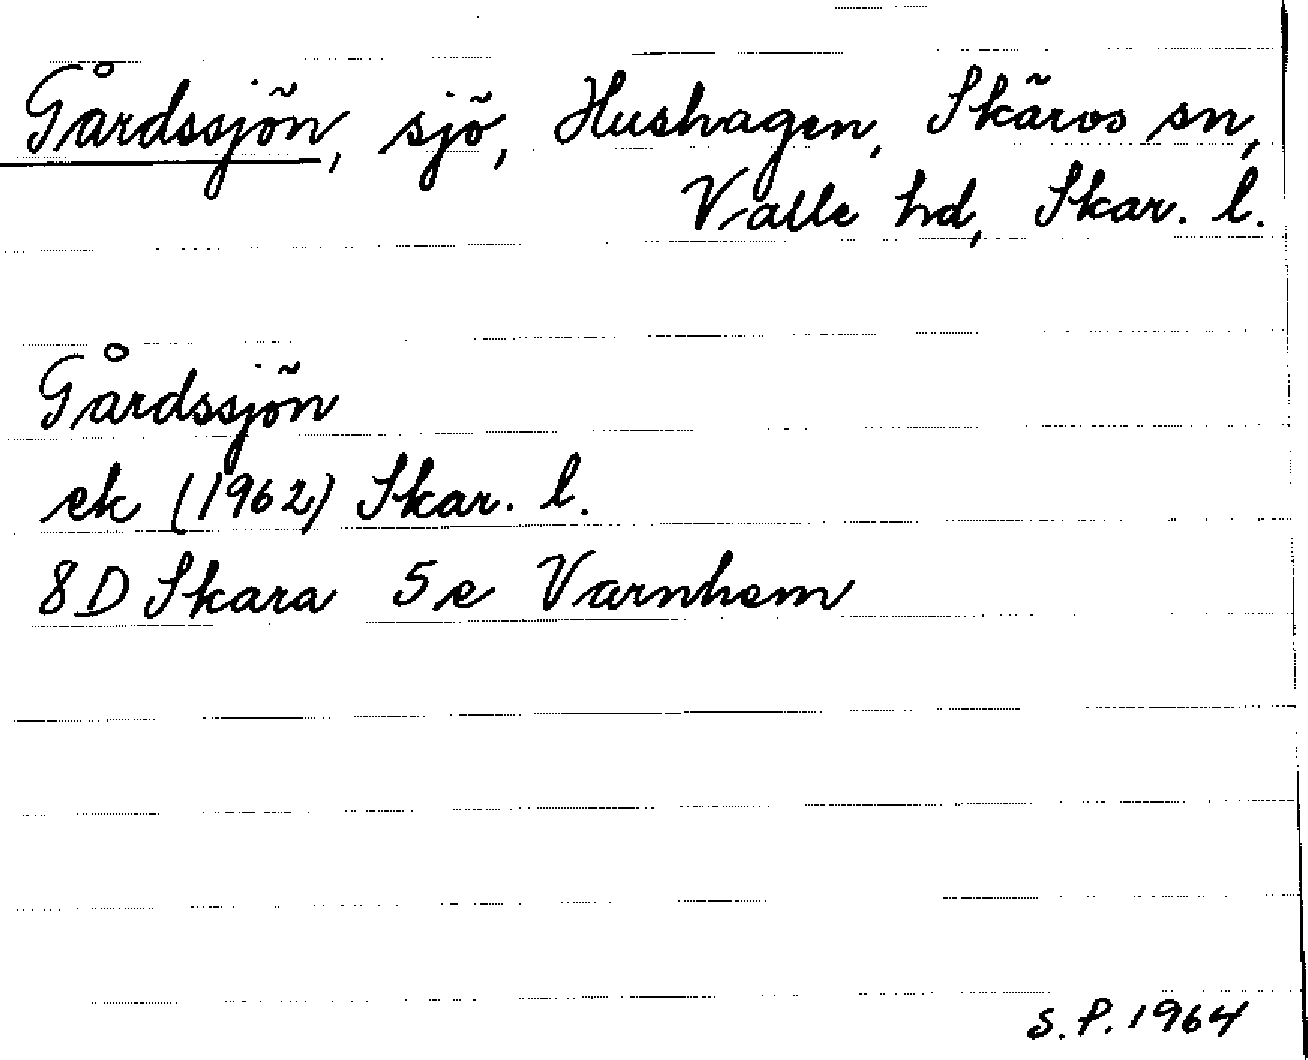 Gårdssjön, sjö, Hushagen, Skärvs sn,
Valle hd, Skar. l.
Gårdssjön
ek (1962) Skar. l.
8D Skara 5e Varnhem
S.P. 1964